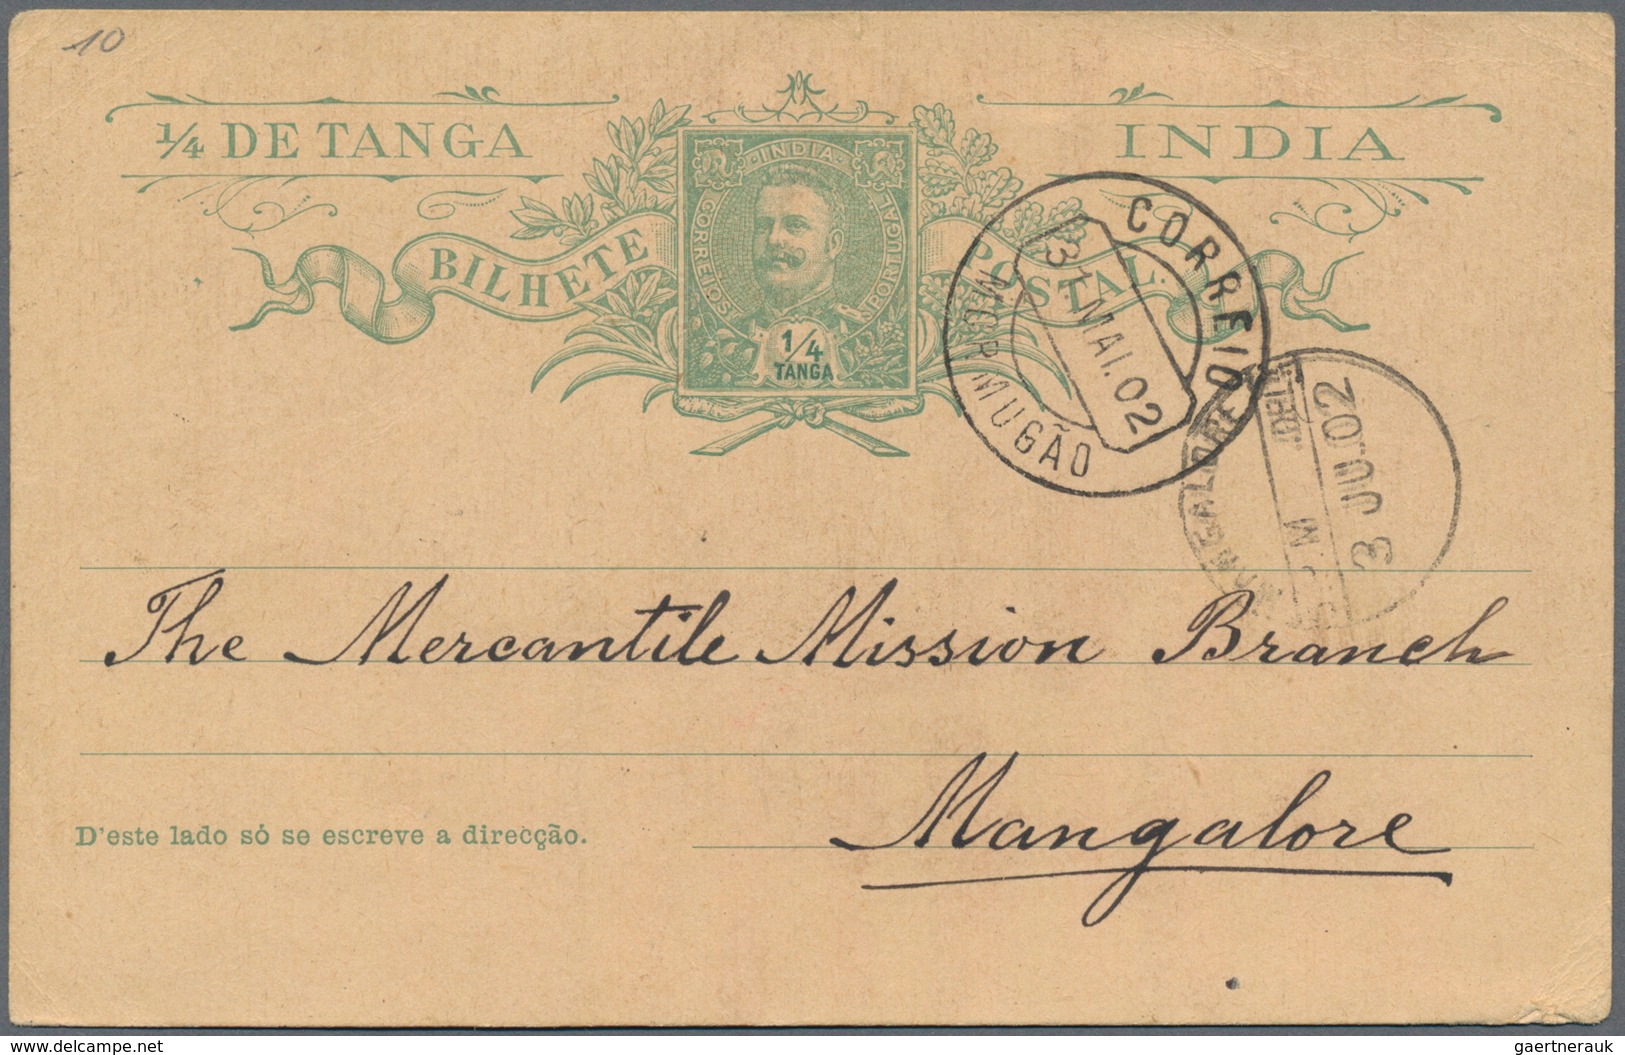 10
1/4 DE TANGA
INDIA
BILHETE POSTAL.
INDIA
CORREIOS
PORTUGAL
1/4
TANGA
CORREIO
31.MAI.02
MORMUGÃO
MANGALORE
DELI
3 JU.02
The Mercantile Mission Branch
Mangalore
D'este lado só se escreve a direcção.
www.delcampe.net
gaertnerauk